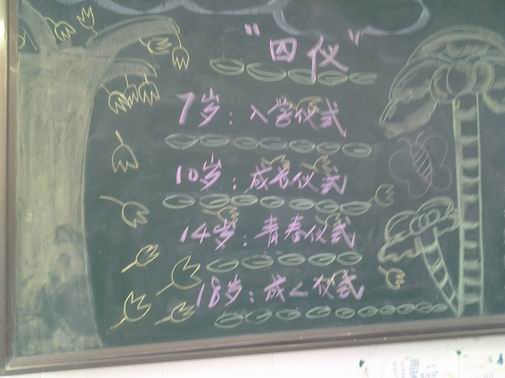 "四仪"
7岁：入学仪式
10岁：成长仪式
14岁：青春仪式
18岁：成人仪式